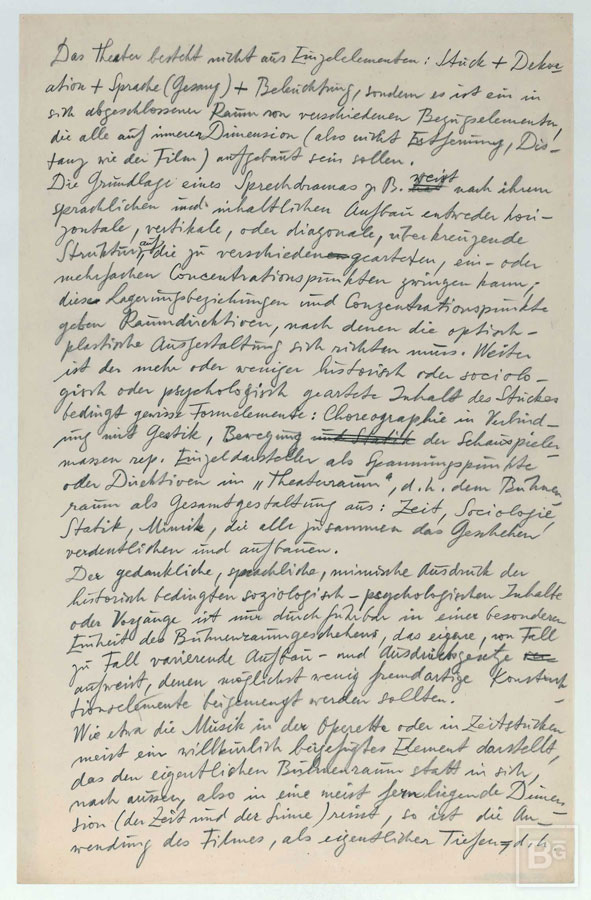 Das Theater besteht nicht aus Einzelelementen: Stück + Dekor-
ation + Sprache (Gesang) + Beleuchtung, sondern es ist ein in
sich abgeschlossener Raum von verschiedenen Bezugselementen,
die alle auf innerer Dimension (also nicht Entfernung, Dis-
tanz wie der Film) aufgebaut sein sollen.
Die Grundlage eines Sprechdramas z. B. weist nach ihrem
sprachlichen und inhaltlichen Aufbau entweder hori-
zontale, vertikale, oder diagonale, überkreuzende
Struktur auf, die zu verschieden gearteten, ein- oder
mehrfachen Concentrationspunkten zwingen kann;
diese Lagerungsbeziehungen und Conzentrationspunkte
geben Raumdirektiven, nach denen die optisch-
plastische Ausgestaltung sich richten muss. Weiter
ist der mehr oder weniger historisch oder sociolo-
gisch oder psychologisch geartete Inhalt des Stückes
bedingt gewisse Formelemente: Choreographie in Verbind-
ung mit Gestik, Bewegung und Statik der Schauspieler-
massen resp. Einzeldarsteller als Spannungspunkte
oder Direktiven im „Theaterraum", d. h. dem Bühnen-
raum als Gesamtgestaltung aus: Zeit, Sociologie,
Statik, Mimik, die alle zusammen das Geschehen
verdeutlichen und aufbauen.
Der gedankliche, sprachliche, mimische Ausdruck der
historisch bedingten soziologisch-psychologischen Inhalte
oder Vorgänge ist nur durchführbar in einer besonderen
Einheit des Bühnenraumgeschehens, das eigene, von Fall
zu Fall varierende Aufbau- und Ausdrucksgesetze
aufweist, denen möglichst wenig fremdartige Konstruk-
tionselemente beigemengt werden sollten.
Wie etwa die Musik in der Operette oder in Zeitstücken
meist ein willkürlich beigefügtes Element darstellt,
das den eigentlichen Bühnenraum statt in sich,
nach aussen, also in eine meist fernliegende Dimen-
sion (der Zeit und der Sinne) reisst, so ist die An-
wendung des Filmes, als eigentlicher Tiefen- d. h.
BG